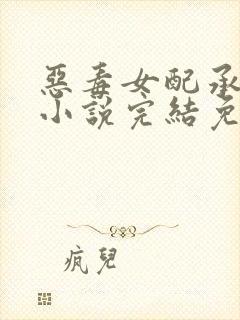 惡毒女配承
小說完結免
瘋兒